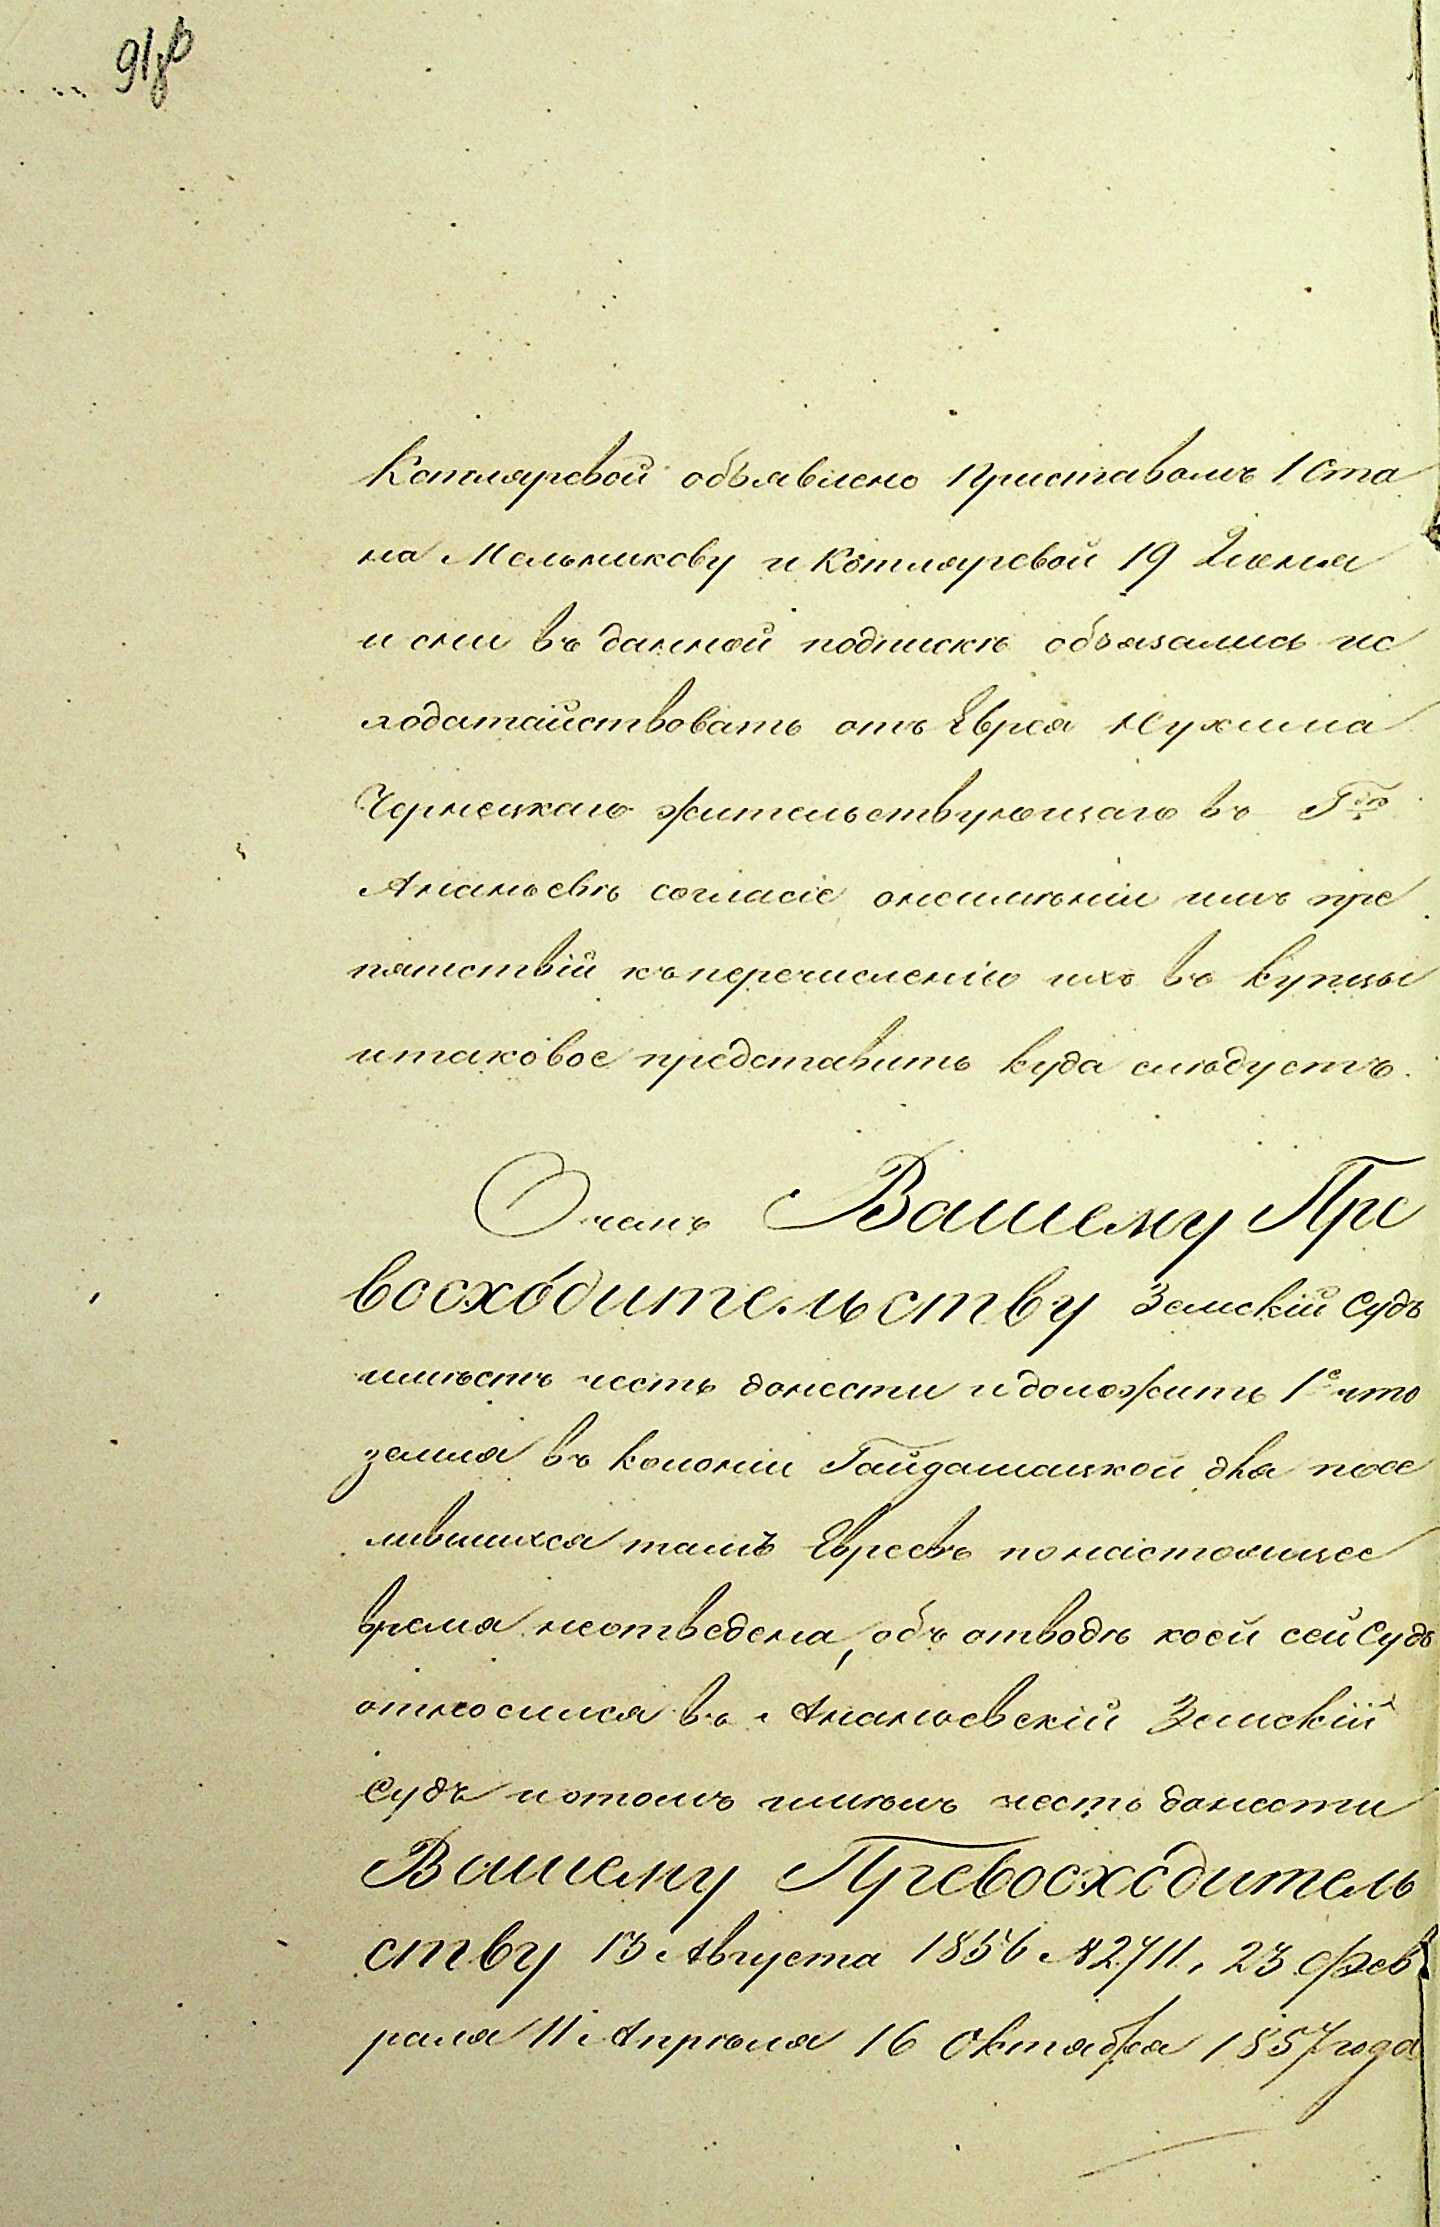 Котляревой объявлено Приставомъ 1 Ста
на Мельникову и Котляревой 19 Июня
и они въ данной подпискѣ обязались ис
ходатайствовать отъ Еврея Нухима
Чернецкаго жительствующаго въ Гдѣ
Ананьевѣ согласіе онеимѣніи имъ пре
пятствій къ перечисленію ихъ въ купцы
итаковое представить куда слѣдуетъ.
О чемъ Вашему Пре
восходительству Земскій Судъ
имѣетъ честь донести и доложить 1е что
земля въ колоніи Гайдамацкой для посе
лившихся тамъ Евреевъ по настоящее
время неотведена, объ отводѣ коей сей Судъ
относился въ Ананьевскій Земскій
Судъ и отомъ имѣлъ честь донести
Вашему Превосходитель
ству 13 Августа 1856 № 2711, 23 Фев
раля 11 Апрѣля 16 Октября 1857 года